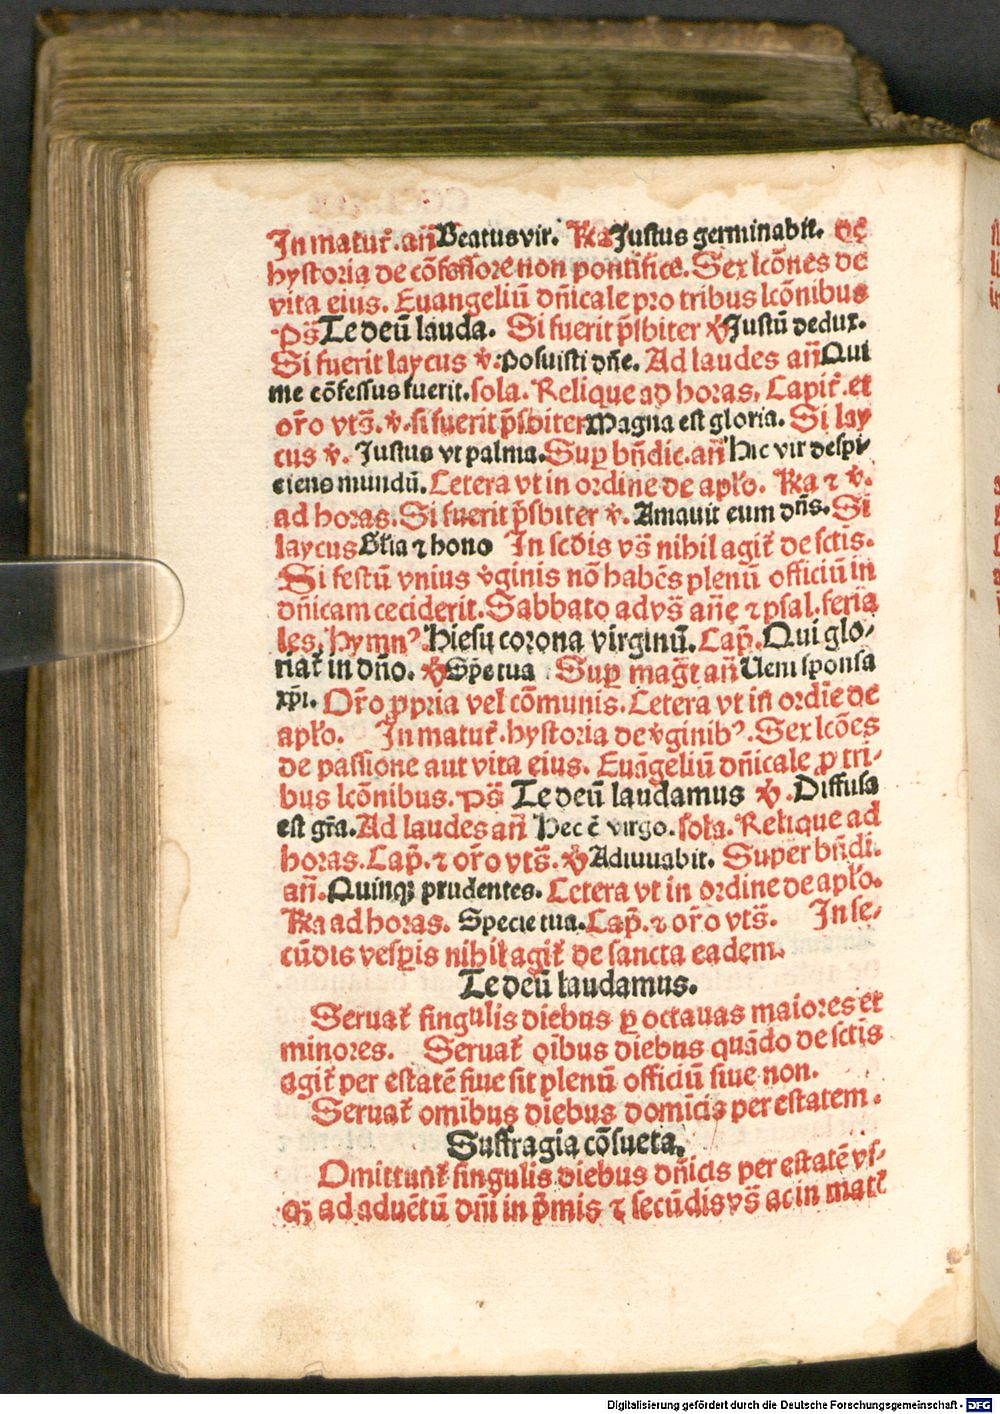 In matur̄. an̄ Beatus vir. Ra Justus germinabit. de
hystoria de cōfessore non pontifice. Sex lcōnes de
vita eius. Euangeliū dn̄icale pro tribus lcōnibus
Ps̄ Te deū lauda. Si fuerit p̄sbiter ꝟ Justū dedux.
Si fuerit laycus ꝟ. Posuisti dn̄e. Ad laudes an̄ Qui
me cōfessus fuerit. sola. Relique ad horas, Capit̄. et
or̄o vts̄. ꝟ. si fuerit p̄sbiter Magna est gloria. Si lay
cus ꝟ. Justus vt palma. Suꝑ bn̄dic. an̄ Hic vir despi⸗
ciens mundū. Cetera vt in ordine de apl̄o. Ra ⁊ ꝟ.
ad horas. Si fuerit p̄sbiter ꝟ. Amauit eum dn̄s. Si
laycus Gl̄ia ⁊ hono In scd̄is vs̄ nihil agit̄ de sctīs.
Si festū vnius v̄ginis nō habēs plenū officiū in
dn̄icam ceciderit. Sabbato ad vs̄ an̄e ⁊ psal. feria
les. Hymnꝰ Hiesu corona virginū. Cap̄. Qui glo⸗
riat̄ in dn̄o. ꝟ Spē tua Suꝑ maḡt an̄ Ueni sponsa
xp̄i. Or̄o ꝓpria vel cōmunis. Cetera vt in ordīe de
apl̄o. In matur̄. hystoria de v̄ginibꝰ. Sex lcōes
de passione aut vita eius. Euāgeliū dn̄icale ꝓ tri⸗
bus lcōnibus. Ps̄ Te deū laudamus ꝟ. Diffusa
est gr̄a. Ad laudes an̄ Hec ē virgo. sola. Relique ad
horas. Cap̄. ⁊ or̄o vts̄. ꝟ Adiuuabit. Super bn̄di.
an̄. Quinqꝫ prudentes. Cetera vt in ordine de apl̄o.
Ra ad horas. Specie tua. Cap̄. ⁊ or̄o vts̄. In se⸗
cūdis vesꝑis nihil agit̄ de sancta eadem.
Te deū laudamus.
Seruat̄ singulis diebus ꝑ octauas maiores et
minores. Seruat̄ oībus diebus quādo de sctīs
agit̄ per estatē siue sit plenū officiū siue non.
Seruat̄ omībus diebus domīcis per estatem.
Suffragia cōsueta.
Omittunt̄ singulis diebus dn̄icis per estatē vs⸗
qꝫ ad aduētū dn̄i in p̄mis ⁊ secūdis vs̄ ac in mat̄
Digitalisierung gefördert durch die Deutsche Forschungsgemeinschaft - DFG